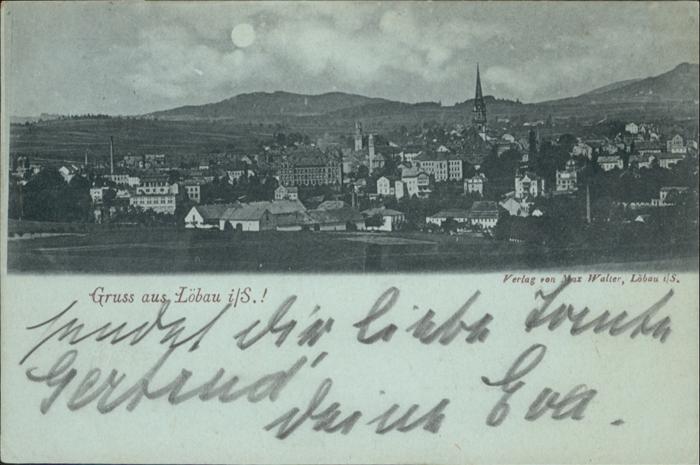 Verlag von Max Walter, Löbau i/S.
Gruss aus Löbau i/S.!
sendet dir, liebe Tante
Gertrud,
deine Eva.